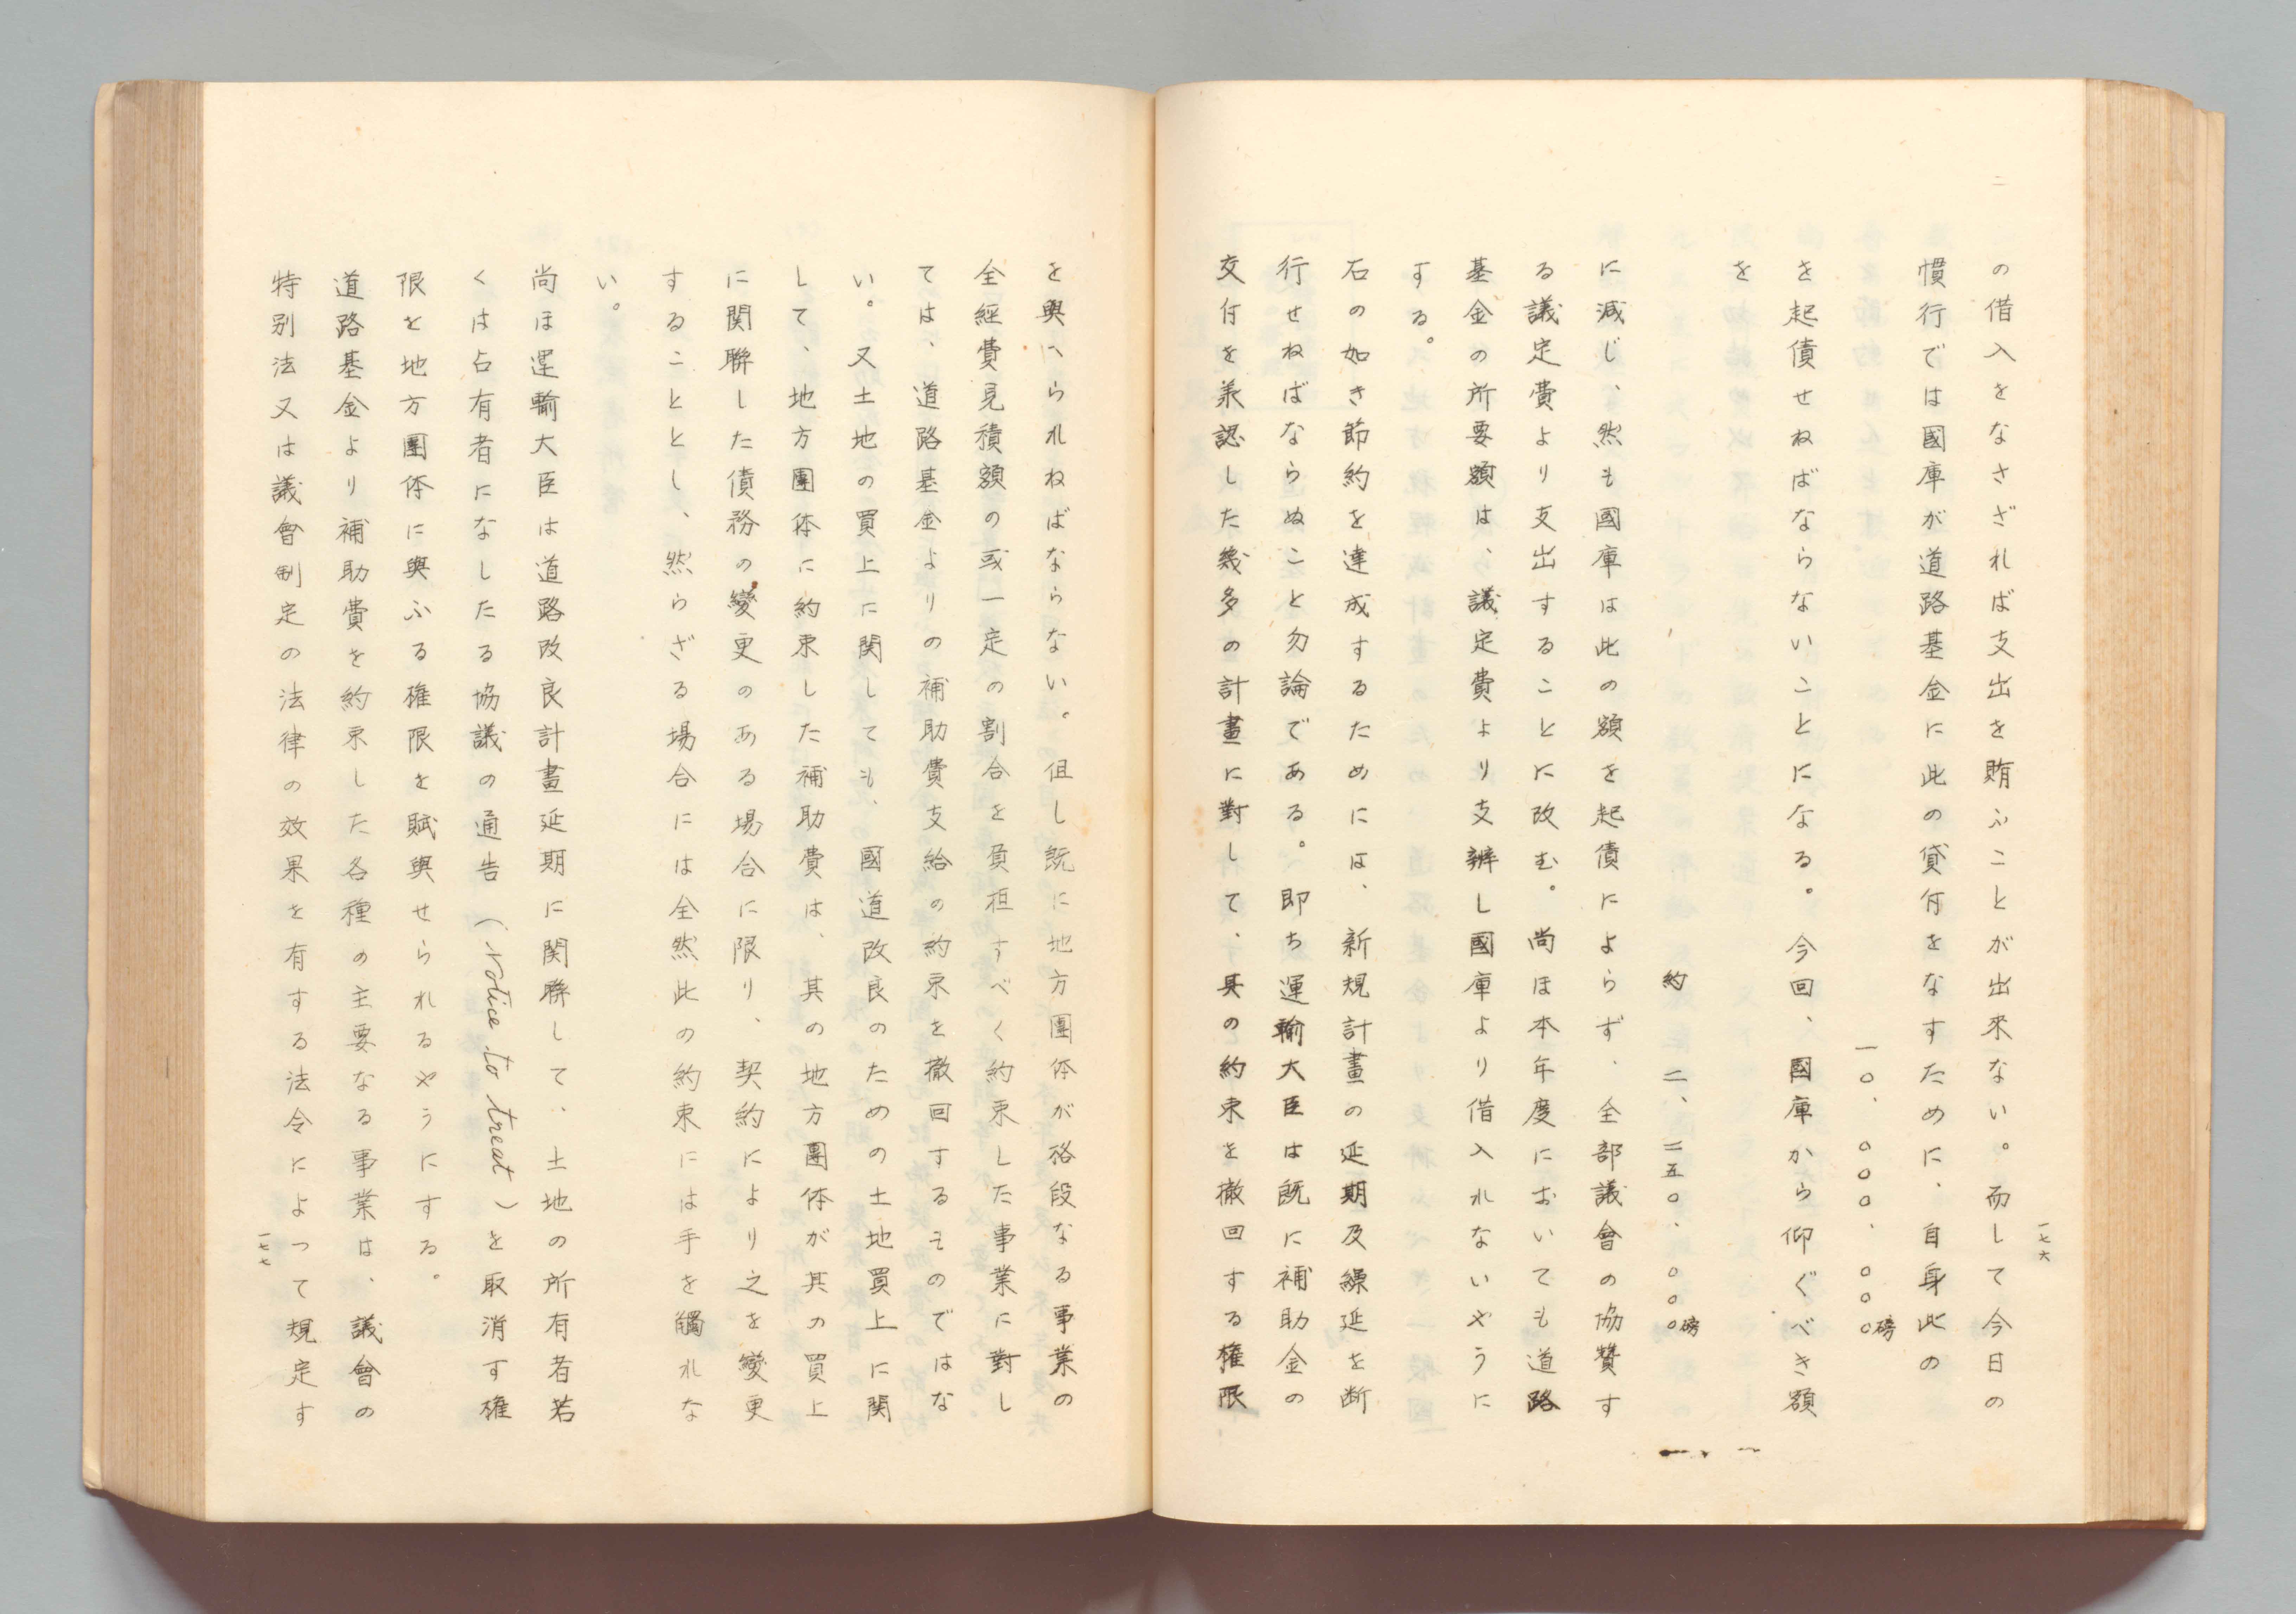 一七六
の借入をなさざれば支出を賄ふことが出來ない。而して今日の
慣行では國庫が道路基金に此の貸付をなすために、自身此の
一〇、〇〇〇、〇〇〇磅
を起債せねばならないことになる。今回、國庫から仰ぐべき額
を
約 二、二五〇、〇〇〇磅
に減じ、然も國庫は此の額を起債によらず、全部議會の協賛す
る議定費より支出することに改む。尚ほ本年度においても道路
基金の所要額は、議定費より支辨し國庫より借入れないやうに
する。
右の如き節約を達成するためには、新規計畫の延期及繰延を断
行せねばならぬこと勿論である。即ち運輸大臣は既に補助金の
交付を承認した幾多の計畫に對して、其の約束を撤回する権限
を與へられねばならない。但し既に地方團体が格段なる事業の
全經費見積額の或一定の割合を負担すべく約束した事業に對し
ては、道路基金よりの補助費支給の約束を撤回するものではな
い。又土地の買上に関しても、國道改良のための土地買上に関
して、地方團体に約束した補助費は、其の地方團体が其の買上
に関聯した債務の變更のある場合に限り、契約により之を變更
することとし、然らざる場合には全然此の約束には手を觸れな
い。
尚ほ運輸大臣は道路改良計畫延期に関聯して、土地の所有者若
くは占有者になしたる協議の通告（notice to treat）を取消す権
限を地方團体に與ふる権限を賦與せられるやうにする。
道路基金より補助費を約束した各種の主要なる事業は、議會の
特別法又は議會制定の法律の效果を有する法令によって規定す
一七七